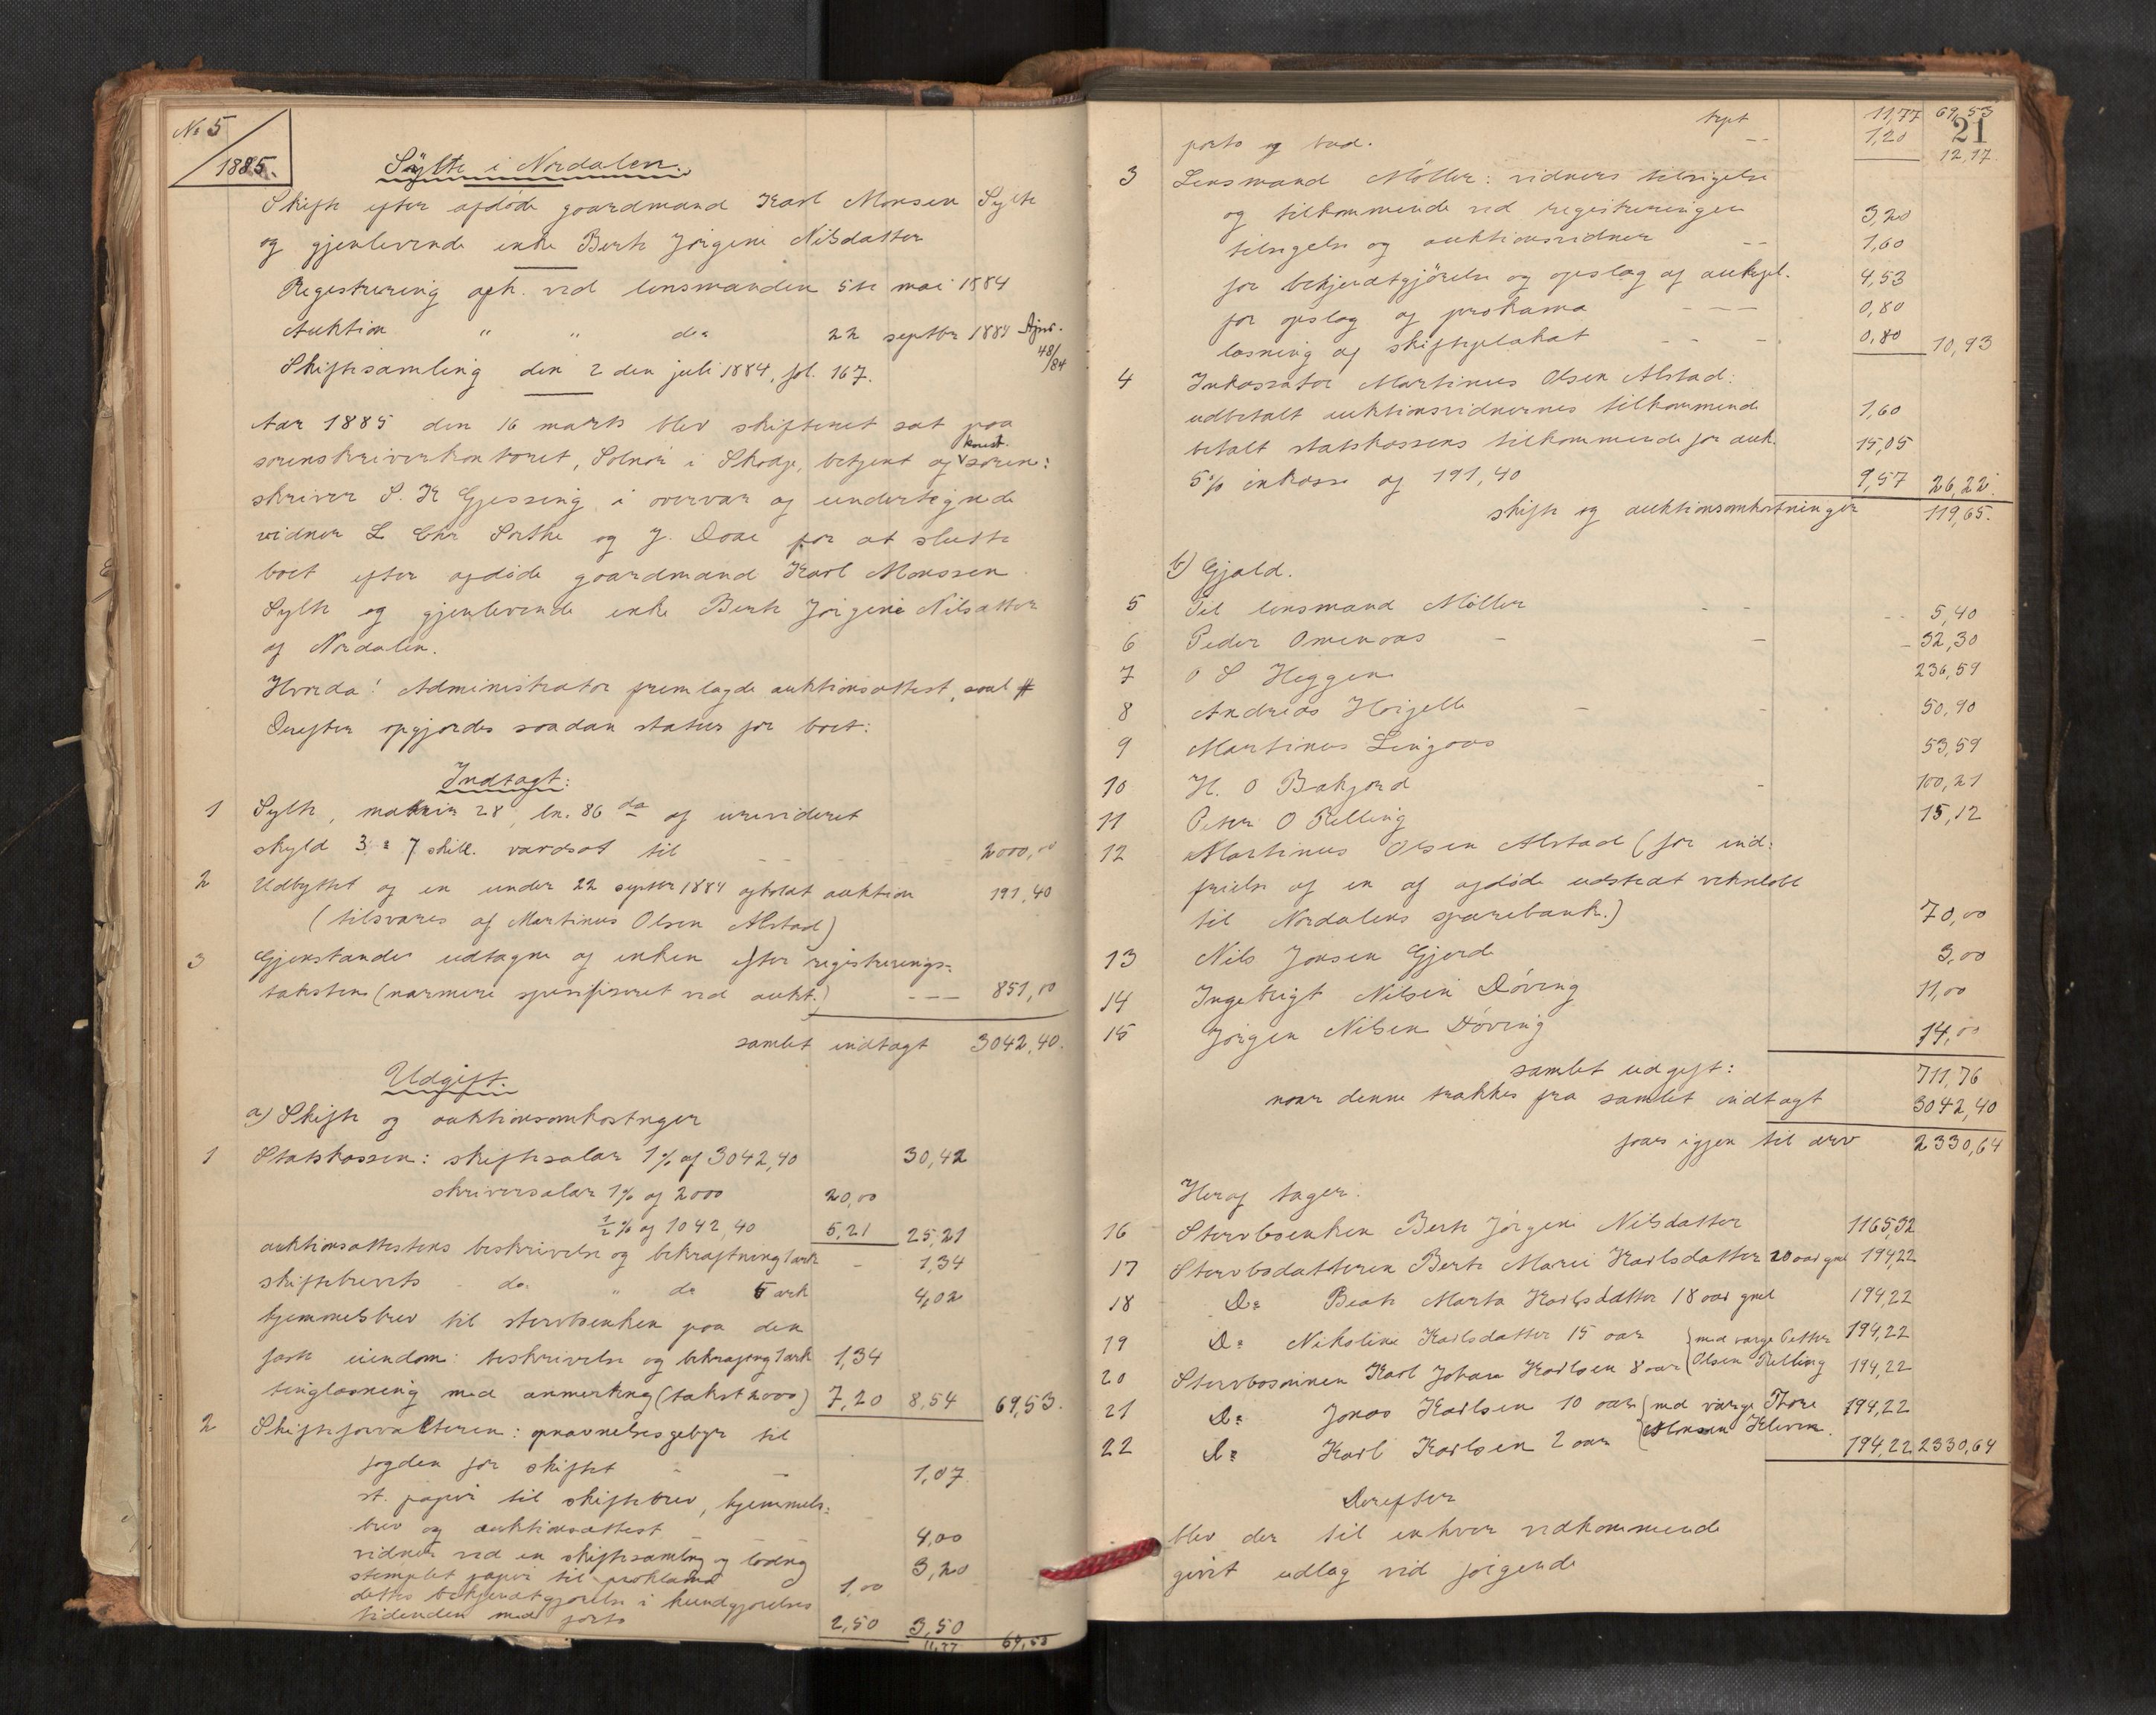 No 5
1885.
Sylte i Nordalen.
Skifte efter afdöde gaardmand Karl Monsen Sylte
og gjenlevende enke Berte Jörgine Nilsdatter
Registrering afh. ved lensmanden 5te mai 1884
Auktion " " do 22 septbr 1884 Ajour.
48/84
Skiftesamling den 2den juli 1884, fol. 167.
Aar 1885 den 16 marts blev skifteret sat paa
sorenskriverkontoret, Solnör i Skodje, betjent af konst. soren:
skriver S. K Gjessing i overvær af undertegnede
vidner L Chr Sorthe og J. Doae for at slutte
boet efter afdöde gaardmand Karl Monssen
Sylte og gjenlevende enke Berte Jörgine Nilsdatter
af Nordalen.
Hvorda: Administrator fremlagde auktionsattest, saal #
Derefter opgjordes saadan status for boet:
Indtægt:
1 Sylte, matr.nr 28, ln. 86 da af urevideret
skyld 3 " 7 skill. værdsat til - - - 2000,00
2 Udbyttet af en under 22 septbr 1884 afholdt auktion 191,40
(tilsvares af Martinus Olsen Alstad)
3 Gjenstande udtagne af enken efter registrerings-
taksten (nærmere spesifiseret ved aukt.) - - - 851,00
samlet indtægt 3042,40.
Udgift.
a) Skifte og auktionsomkostnger
1 Statskassen: skiftesalær 1% af 3042,40 30,42
skriversalær 1% af 2000 20,00
1/2% af 1042,40 5,21 25,21
auktionsattestens beskrivelse og bekræftning 1 ark - 1,34
skiftebrevets do " do 5 ark 4,02
hjemmelsbrev til stervboenken paa den
faste eiendom: beskrivelse og bekræftng 1 ark 1,34
tinglæsning med anmerkng (takst 2000) 7,20 8,54 69,53.
2 Skifteforvalteren: opnævnelsesgebyr til
fogden for skiftet - - 1,07
st. papir til skiftebrev, hjemmels-
brev og auktionsattest - - 4,00
vidner ved en skiftesamlng og lodng 3,20
stemplet papir til proklama 1,00
dettes bekjendtgjörelse i kundgjörelses
tidenden med porto 2,50 3,50
11,77 69,53
21
trpt 11,77 69,53
porto og bud. - 1,20 12,97
3 Lensmand Möller: vidners tilsigelse
og tilkommende ved registreringen 3,20
tilsigelse af auktionsvidner - - 1,60
for bekjendtgjörelse og opslag af aukspl. 4,53
for opslag af proklama - - - 0,80
læsning af skifteplakat - - - 0,80 10,93
4 Inkassator Martinus Olsen Alstad:
udbetalt auktionsvidnernes tilkommende 1,60
betalt statskassens tilkommende for auk. 15,05
5% inkasso af 191,40 9,57 26,22.
skifte og auktionsomkostninger 119,65.
b) Gjæld.
5 Til lensmand Möller - - - - 5,40
6 Peder Omenaas - - - 32,30
7 O S Heggen 236,59
8 Andreas Hoigelle - - 50,90
9 Martinus Lingaas 53,59
10 H. O Bakjord - 100,21
11 Peter O Relling 15,12
12 Martinus Olsen Alstad (for ind:
frielse af en af afdöde udstedt vekselobl
til Nordalens sparebank.) 70,00
13 Nils Jonsen Gjerde 3,00
14 Ingebrigt Nilsen Döving 11,00
15 Jörgen Nilsen Döving 14,00
samlet udgift: 711,76
naar denne trækkes fra samlet indtægt 3042,40
faaes igjen til arv 2330,64
Heraf tager:
16 Stervboenken Berte Jörgine Nilsdatter 1165,32
17 Stervbodatteren Berte Marie Karlsdatter 20 aar gml 194,22
18 Do Beate Marta Karlsdatter 18 aar gml 194,22
19 Do Nikoline Karlsdatter 15 aar {med værge Petter 194,22
20 Stervbosönnen Karl Johan Karlsen 8 aar {Olsen Relling 194,22
21 Do Jonas Karlsen 10 aar {med værge Thore 194,22
22 Do Karl Karlsen 2 aar {Monsen Kleven. 194,22 2330,64
Derefter
blev der til enhver vedkommende
givet udlæg ved fölgende